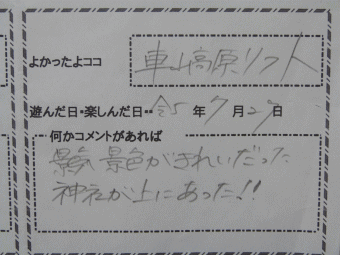 よかったよココ 車山高原リフト
遊んだ日・楽しんだ日・・ 令5 年 7 月 27 日
何かコメントがあれば
景色がきれいだった
神社が上にあった!!